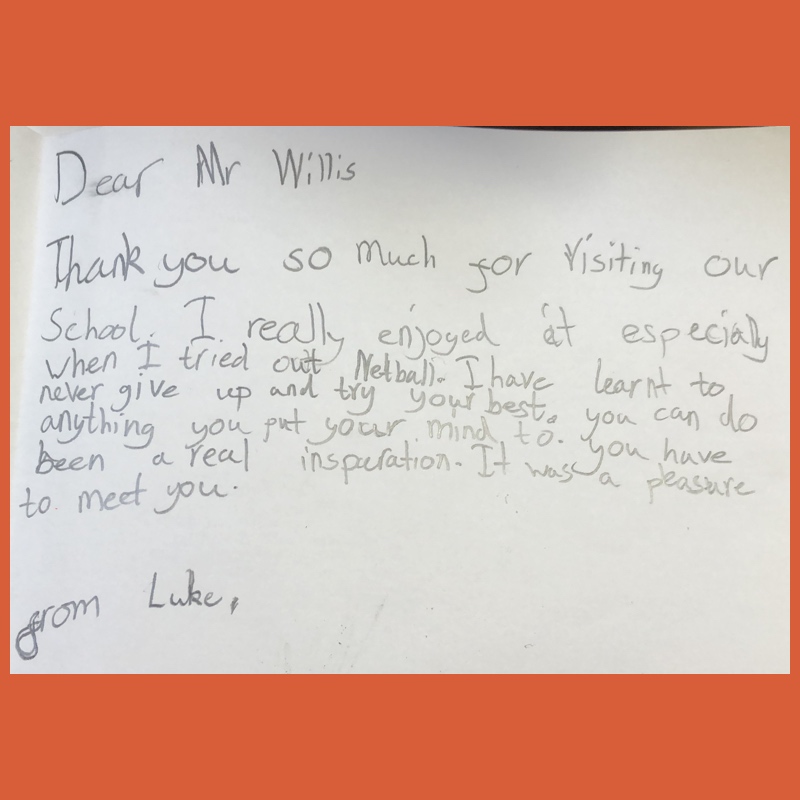 Dear Mr Willis
Thank you so much for Visiting our
School. I really enjoyed it especially
when I tried out Netball. I have learnt to
never give up and try your best. you can do
anything you put your mind to. you have
been a real inspuration. It was a pleasure
to meet you.
from Luke,